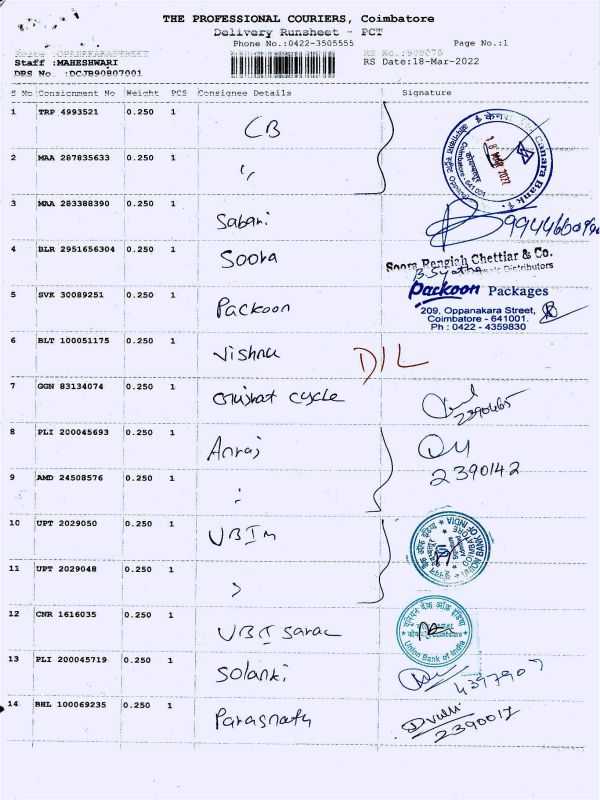 THE PROFESSIONAL COURIERS, Coimbatore
Delivery Runsheet - PCT
Phone No.:0422-3505555 Page No.:1
Route :OPPANAKARASTREET RS No.:908076
Staff :MAHESHWARI RS Date:18-Mar-2022
DRS No. :DCJB90807001
S No Consignment No Weight PCS Consignee Details Signature
1 TRP 4993521 0.250 1 CB
2 MAA 287835633 0.250 1 "
केनरा बैंक Canara Bank
Coimbatore - 641 001
18 MAR 2022
3 MAA 283388390 0.250 1 Sabari
4 BLR 2951656304 0.250 1 Soora Soora Rengiah Chettiar & Co.
Distributors
5 SVK 30089251 0.250 1 Packoon Packoon Packages
209, Oppanakara Street,
Coimbatore - 641001.
Ph : 0422 - 4359830
6 BLT 100051175 0.250 1 Vishnu DIL
7 GGN 83134074 0.250 1 Gujrat cycle 2390465
8 PLI 200045693 0.250 1 Anraj
2390142
9 AMD 24508576 0.250 1 "
10 UPT 2029050 0.250 1 UBIM UNION BANK OF INDIA
COIMBATORE
11 UPT 2029048 0.250 1 "
12 CNR 1616035 0.250 1 UBI Sarac यूनियन बैंक ऑफ इंडिया
Union Bank of India
13 PLI 200045719 0.250 1 Solanki 4397907
14 BHL 100069235 0.250 1 Parasnath
2390017